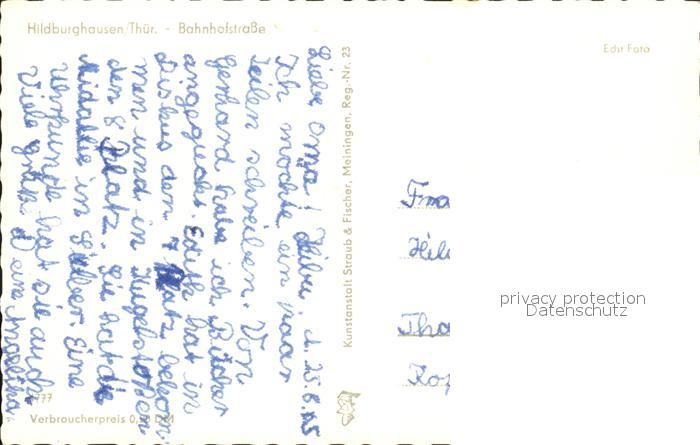 Hildburghausen/Thür. - Bahnhofstraße
Edit Foto
Liebe Oma! Hibu d. 25.8.65
Ich möchte ein paar
Zeilen schreiben. Von
Gerhard habe ich Bücher
angeguckt. Edith hat in
Diskus den 7 Platz bekom
men und in Kugelstoßen
den 8 Platz. Sie hat die
Midalle in Silber. Eine
Urkunde hat sie auch
Viele Grüße
eine
Kunstanstalt Straub & Fischer, Meiningen, Reg.-Nr. 23
Fra
Hil
Tha
privacy protection
Datenschutz
Verbraucherpreis 0, DM